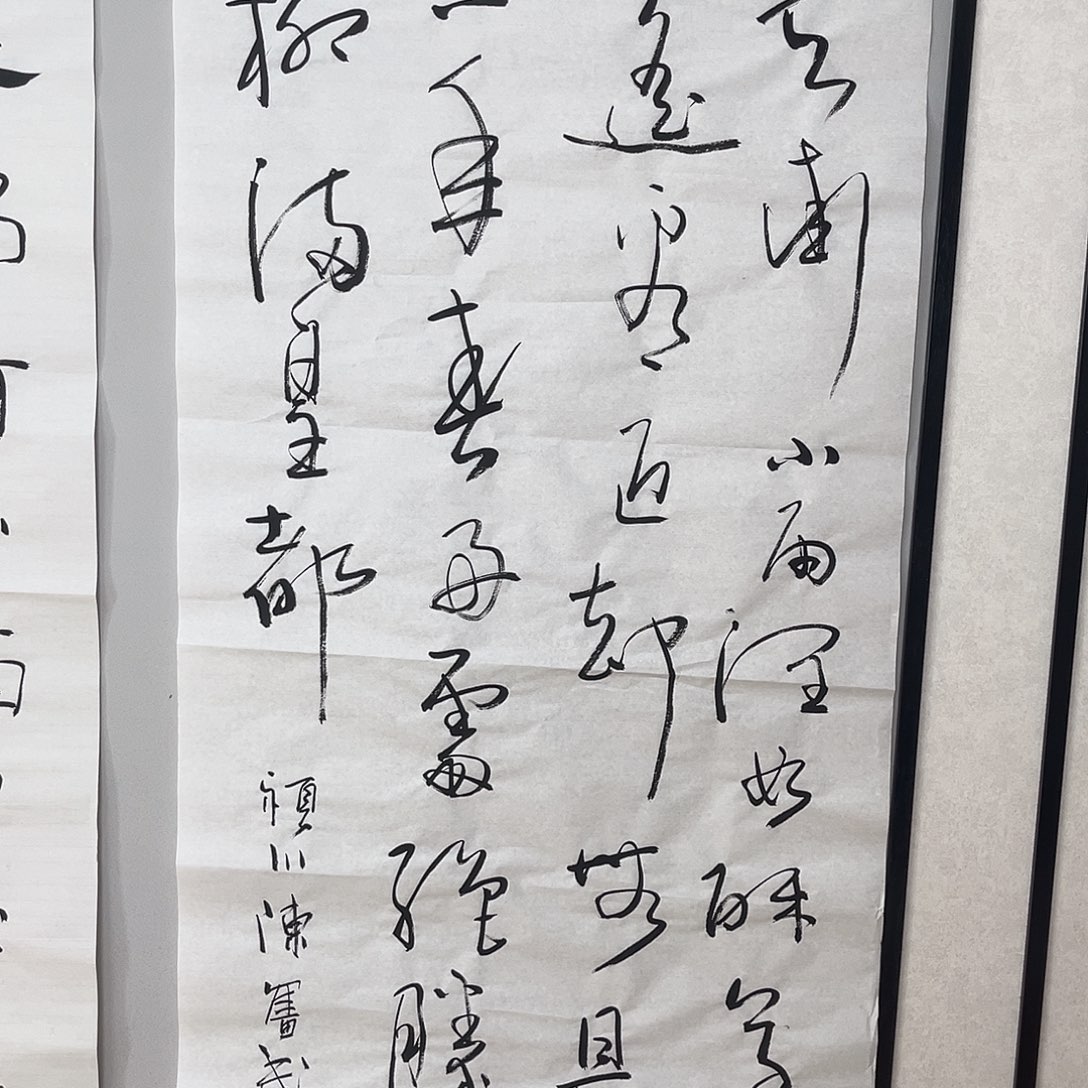 天街小雨潤如酥草
遙看近卻無最
一年春好處絕勝
柳滿皇都 穎川陳奮武